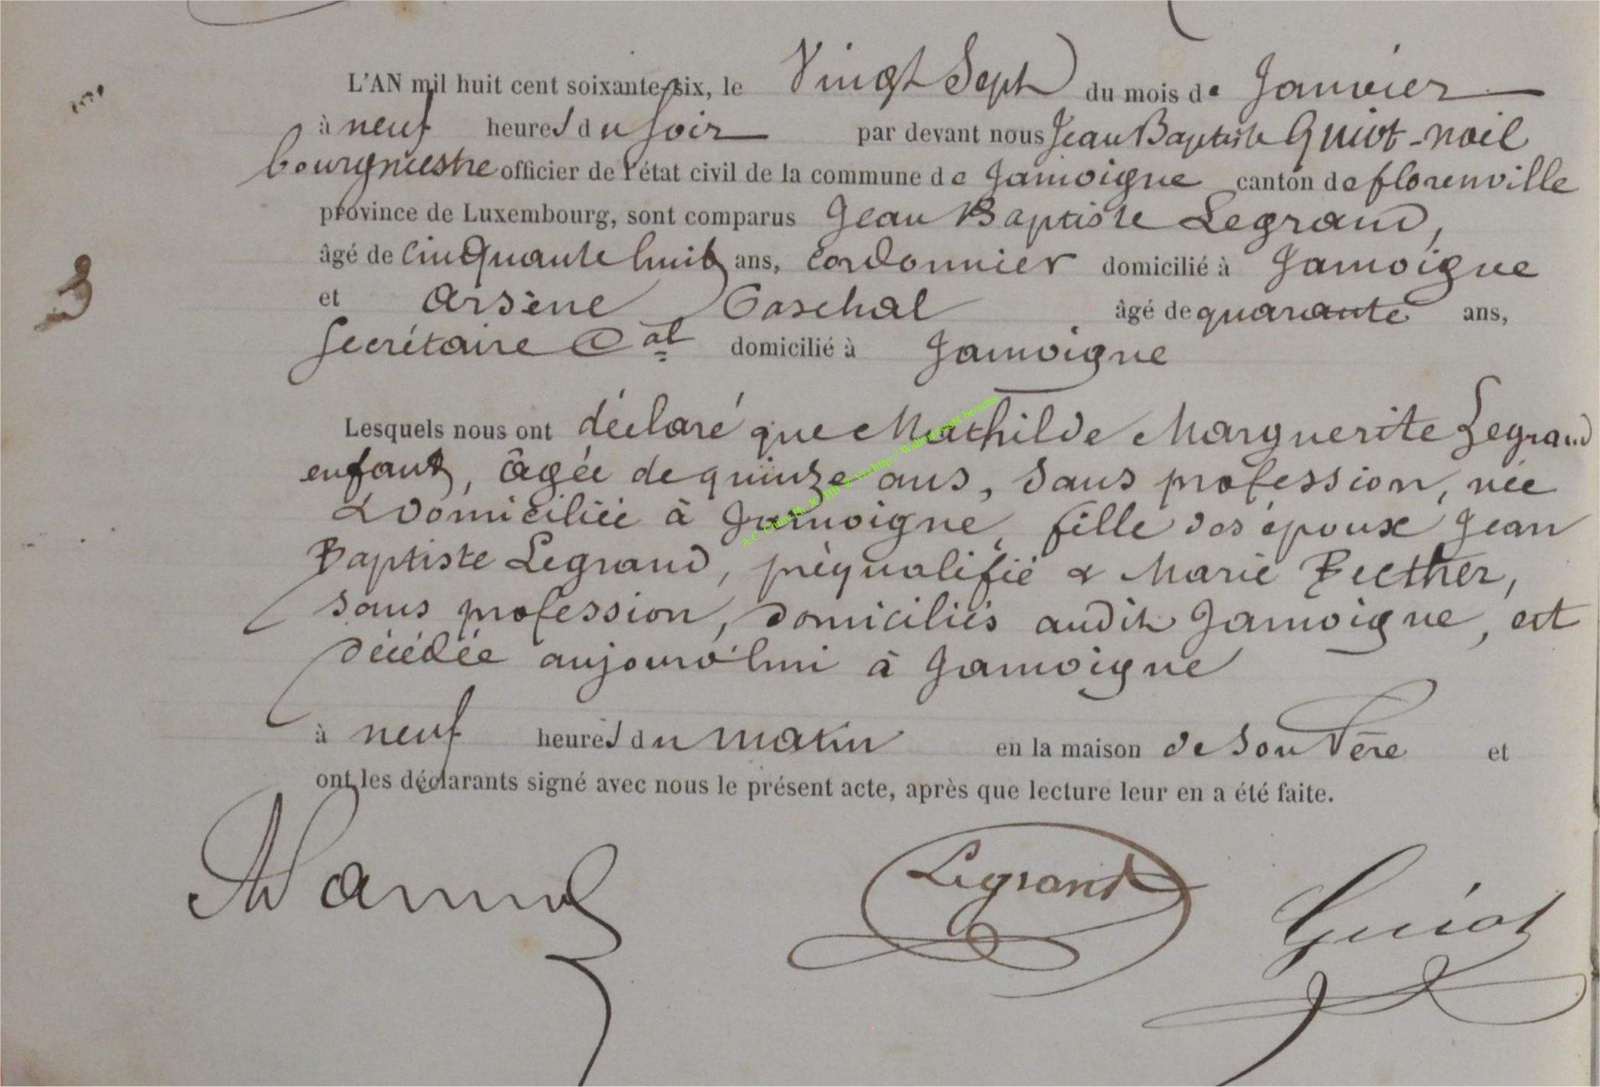 3
L'AN mil huit cent soixante-six, le Vingt Sept du mois de Janvier
à neuf heures du soir par devant nous Jean Baptiste Guiot-noël
bourgmestre officier de l'état civil de la commune de Jamoigne canton de florenville
province de Luxembourg, sont comparus Jean Baptiste Legrand,
âgé de cinquante huit ans, cordonnier domicilié à Jamoigne
et Arsène âgé de quarante ans,
secrétaire Cal domicilié à Jamoigne
Lesquels nous ont déclaré que Mathilde Marguerite Legrand
enfant, âgée de quinze ans, sans profession, née
& domiciliée à Jamoigne, fille des époux Jean
Baptiste Legrand, préqualifié & Marie
sans profession, domiciliés audit Jamoigne, est
décédée aujourd'hui à Jamoigne
à neuf heures du matin en la maison de son Père et
ont les déclarants signé avec nous le présent acte, après que lecture leur en a été faite.
Legrand Guiot